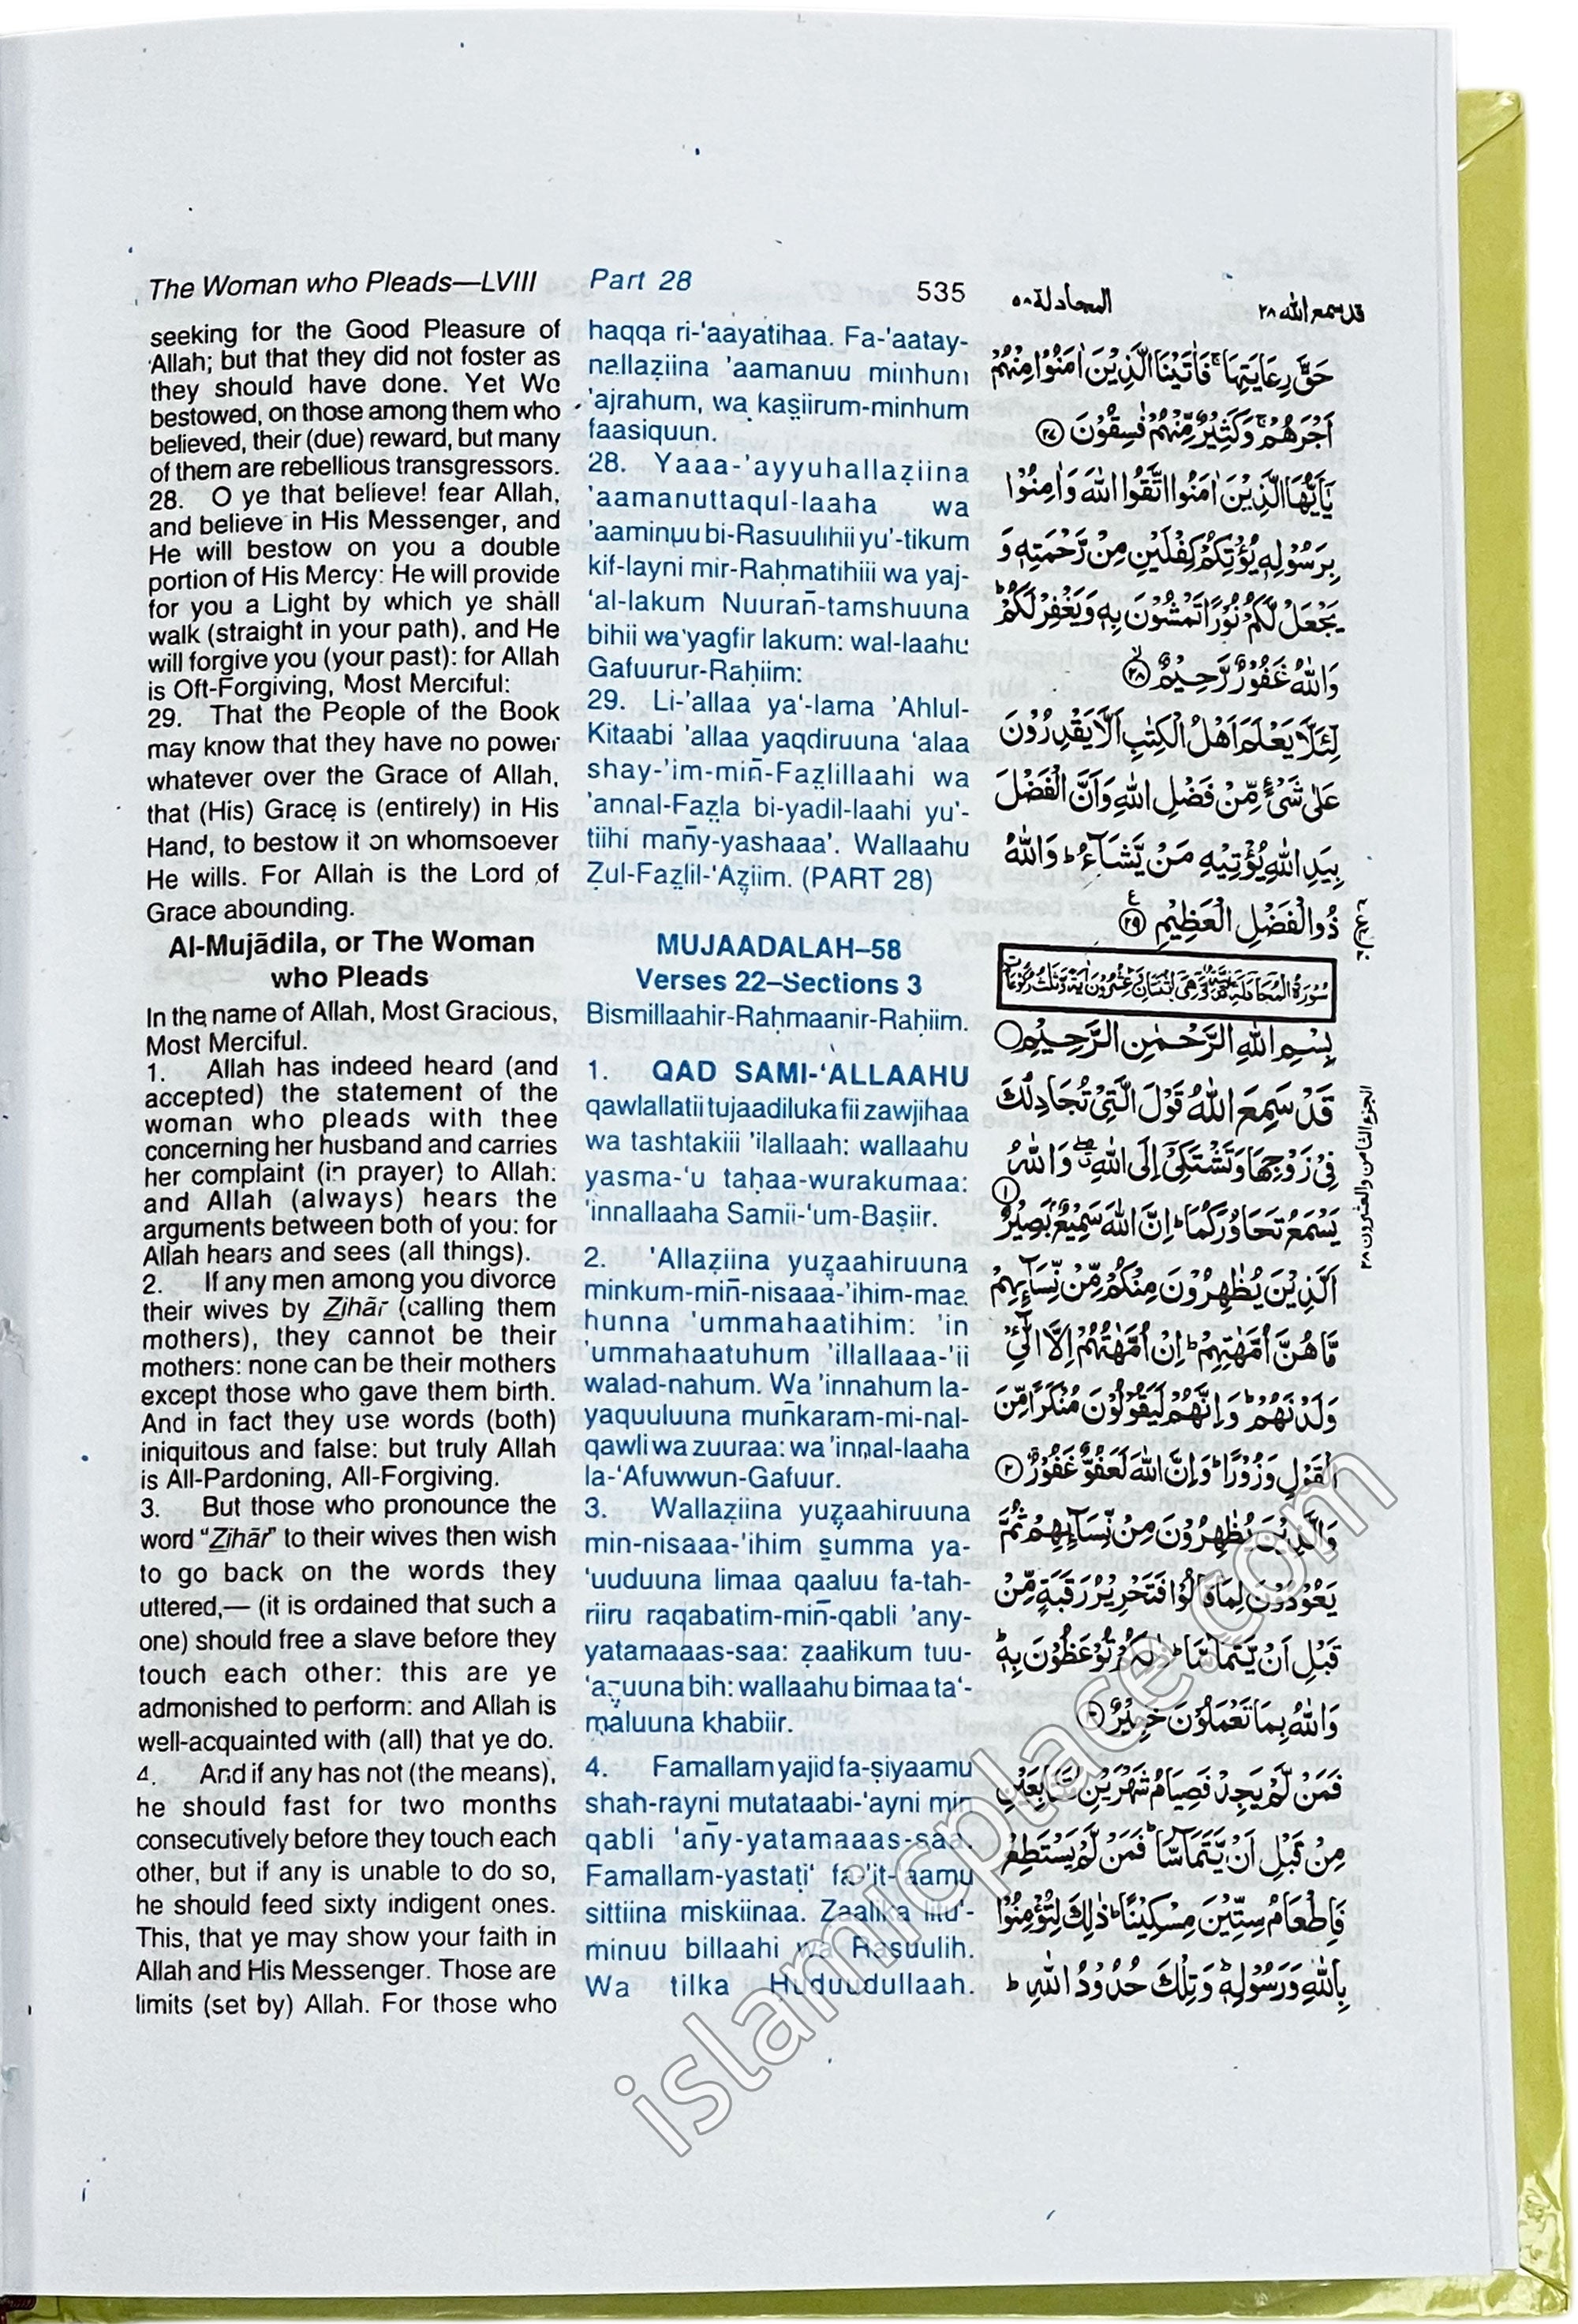 The Woman who Pleads—LVIII
Part 28
535
المجادلة ٥٨
قد سمع الله ٢٨
seeking for the Good Pleasure of
Allah; but that they did not foster as
they should have done. Yet We
bestowed, on those among them who
believed, their (due) reward, but many
of them are rebellious transgressors.
28. O ye that believe! fear Allah,
and believe in His Messenger, and
He will bestow on you a double
portion of His Mercy: He will provide
for you a Light by which ye shall
walk (straight in your path), and He
will forgive you (your past): for Allah
is Oft-Forgiving, Most Merciful:
29. That the People of the Book
may know that they have no power
whatever over the Grace of Allah,
that (His) Grace is (entirely) in His
Hand, to bestow it on whomsoever
He wills. For Allah is the Lord of
Grace abounding.
Al-Mujādila, or The Woman
who Pleads
In the name of Allah, Most Gracious,
Most Merciful.
1. Allah has indeed heard (and
accepted) the statement of the
woman who pleads with thee
concerning her husband and carries
her complaint (in prayer) to Allah:
and Allah (always) hears the
arguments between both of you: for
Allah hears and sees (all things).
2. If any men among you divorce
their wives by Zihār (calling them
mothers), they cannot be their
mothers: none can be their mothers
except those who gave them birth.
And in fact they use words (both)
iniquitous and false: but truly Allah
is All-Pardoning, All-Forgiving.
3. But those who pronounce the
word “Zihār” to their wives then wish
to go back on the words they
uttered,— (it is ordained that such a
one) should free a slave before they
touch each other: this are ye
admonished to perform: and Allah is
well-acquainted with (all) that ye do.
4. And if any has not (the means),
he should fast for two months
consecutively before they touch each
other, but if any is unable to do so,
he should feed sixty indigent ones.
This, that ye may show your faith in
Allah and His Messenger. Those are
limits (set by) Allah. For those who
haqqa ri-‘aayatihaa. Fa-’aatay-
nallaẓiina ’aamanuu minhum
’ajrahum, wa kaṣiirum-minhum
faasiquun.
28. Yaaa-’ayyuhallaẓiina
’aamanuttaqul-laaha wa
’aaminuu bi-Rasuulihii yu’-tikum
kif-layni mir-Raḥmatihiii wa yaj-
‘al-lakum Nuurañ-tamshuuna
bihii wa yagfir lakum: wal-laahu
Gafuurur-Raḥiim:
29. Li-’allaa ya‘-lama ’Ahlul-
Kitaabi ’allaa yaqdiruuna ‘alaa
shay-’im-miñ-Fazlillaahi wa
’annal-Fazla bi-yadil-laahi yu’-
tiihi mañy-yashaaa’. Wallaahu
Ẓul-Fazlil-‘Aẓiim. (PART 28)
MUJAADALAH–58
Verses 22–Sections 3
Bismillaahir-Raḥmaanir-Raḥiim.
1. QAD SAMI-‘ALLAAHU
qawlallatii tujaadiluka fii zawjihaa
wa tashtakiii ’ilallaah: wallaahu
yasma-‘u taḥaa-wurakumaa:
’innallaaha Samii-‘um-Baṣiir.
2. ’Allaẓiina yuẓaahiruuna
minkum-miñ-nisaaa-’ihim-maa
hunna ’ummahaatihim: ’in
’ummahaatuhum ’illallaaa-’ii
walad-nahum. Wa ’innahum la-
yaquuluuna muñkaram-mi-nal-
qawli wa zuuraa: wa ’innal-laaha
la-‘Afuwwun-Gafuur.
3. Wallaẓiina yuẓaahiruuna
min-nisaaa-’ihim ṣumma ya-
‘uuduuna limaa qaaluu fa-taḥ-
riiru raqabatim-miñ-qabli ’any-
yatamaaas-saa: ẓaalikum tuu-
‘aẓuuna bih: wallaahu bimaa ta‘-
maluuna khabiir.
4. Famallam yajid fa-ṣiyaamu
shah-rayni mutataabi-‘ayni min
qabli ’añy-yatamaaas-saa.
Famallam-yastaṭi‘ fa-’it-‘aamu
sittiina miskiinaa. Zaalika litu’-
minuu billaahi wa Rasuulih.
Wa tilka Huduudullaah.
حَقَّ رِعَايَتِهَا ۚ فَاٰتَيْنَا الَّذِيْنَ اٰمَنُوْا مِنْهُمْ
اَجْرَهُمْ ۚ وَكَثِيْرٌ مِّنْهُمْ فٰسِقُوْنَ ٢٧
يٰۤاَيُّهَا الَّذِيْنَ اٰمَنُوا اتَّقُوا اللّٰهَ وَاٰمِنُوْا
بِرَسُوْلِهٖ يُؤْتِكُمْ كِفْلَيْنِ مِنْ رَّحْمَتِهٖ وَ
يَجْعَلْ لَّكُمْ نُوْرًا تَمْشُوْنَ بِهٖ وَيَغْفِرْ لَكُمْ ؕ
وَاللّٰهُ غَفُوْرٌ رَّحِيْمٌ ٢٨
لِّئَلَّا يَعْلَمَ اَهْلُ الْكِتٰبِ اَلَّا يَقْدِرُوْنَ
عَلٰى شَيْءٍ مِّنْ فَضْلِ اللّٰهِ وَاَنَّ الْفَضْلَ
بِيَدِ اللّٰهِ يُؤْتِيْهِ مَنْ يَّشَآءُ ؕ وَاللّٰهُ
ذُو الْفَضْلِ الْعَظِيْمِ ٢٩
بِسْمِ اللّٰهِ الرَّحْمٰنِ الرَّحِيْمِ
قَدْ سَمِعَ اللّٰهُ قَوْلَ الَّتِيْ تُجَادِلُكَ
فِيْ زَوْجِهَا وَتَشْتَكِيْۤ اِلَى اللّٰهِ ۖ وَاللّٰهُ
يَسْمَعُ تَحَاوُرَكُمَا ؕ اِنَّ اللّٰهَ سَمِيْعٌۢ بَصِيْرٌ ١
اَلَّذِيْنَ يُظٰهِرُوْنَ مِنْكُمْ مِّنْ نِّسَآئِهِمْ
مَّا هُنَّ اُمَّهٰتِهِمْ ؕ اِنْ اُمَّهٰتُهُمْ اِلَّا الّٰٓـِٔيْ
وَلَدْنَهُمْ ؕ وَاِنَّهُمْ لَيَقُوْلُوْنَ مُنْكَرًا مِّنَ
الْقَوْلِ وَزُوْرًا ؕ وَاِنَّ اللّٰهَ لَعَفُوٌّ غَفُوْرٌ ٢
وَالَّذِيْنَ يُظٰهِرُوْنَ مِنْ نِّسَآئِهِمْ ثُمَّ
يَعُوْدُوْنَ لِمَا قَالُوْا فَتَحْرِيْرُ رَقَبَةٍ مِّنْ
قَبْلِ اَنْ يَّتَمَآسَّا ؕ ذٰلِكُمْ تُوْعَظُوْنَ بِهٖ ؕ
وَاللّٰهُ بِمَا تَعْمَلُوْنَ خَبِيْرٌ ٣
فَمَنْ لَّمْ يَجِدْ فَصِيَامُ شَهْرَيْنِ مُتَتَابِعَيْنِ
مِنْ قَبْلِ اَنْ يَّتَمَآسَّا ۚ فَمَنْ لَّمْ يَسْتَطِعْ
فَاِطْعَامُ سِتِّيْنَ مِسْكِيْنًا ؕ ذٰلِكَ لِتُؤْمِنُوْا
بِاللّٰهِ وَرَسُوْلِهٖ ؕ وَتِلْكَ حُدُوْدُ اللّٰهِ ؕ
الجزء الثامن والعشرون ٢٨
islamicplace.com